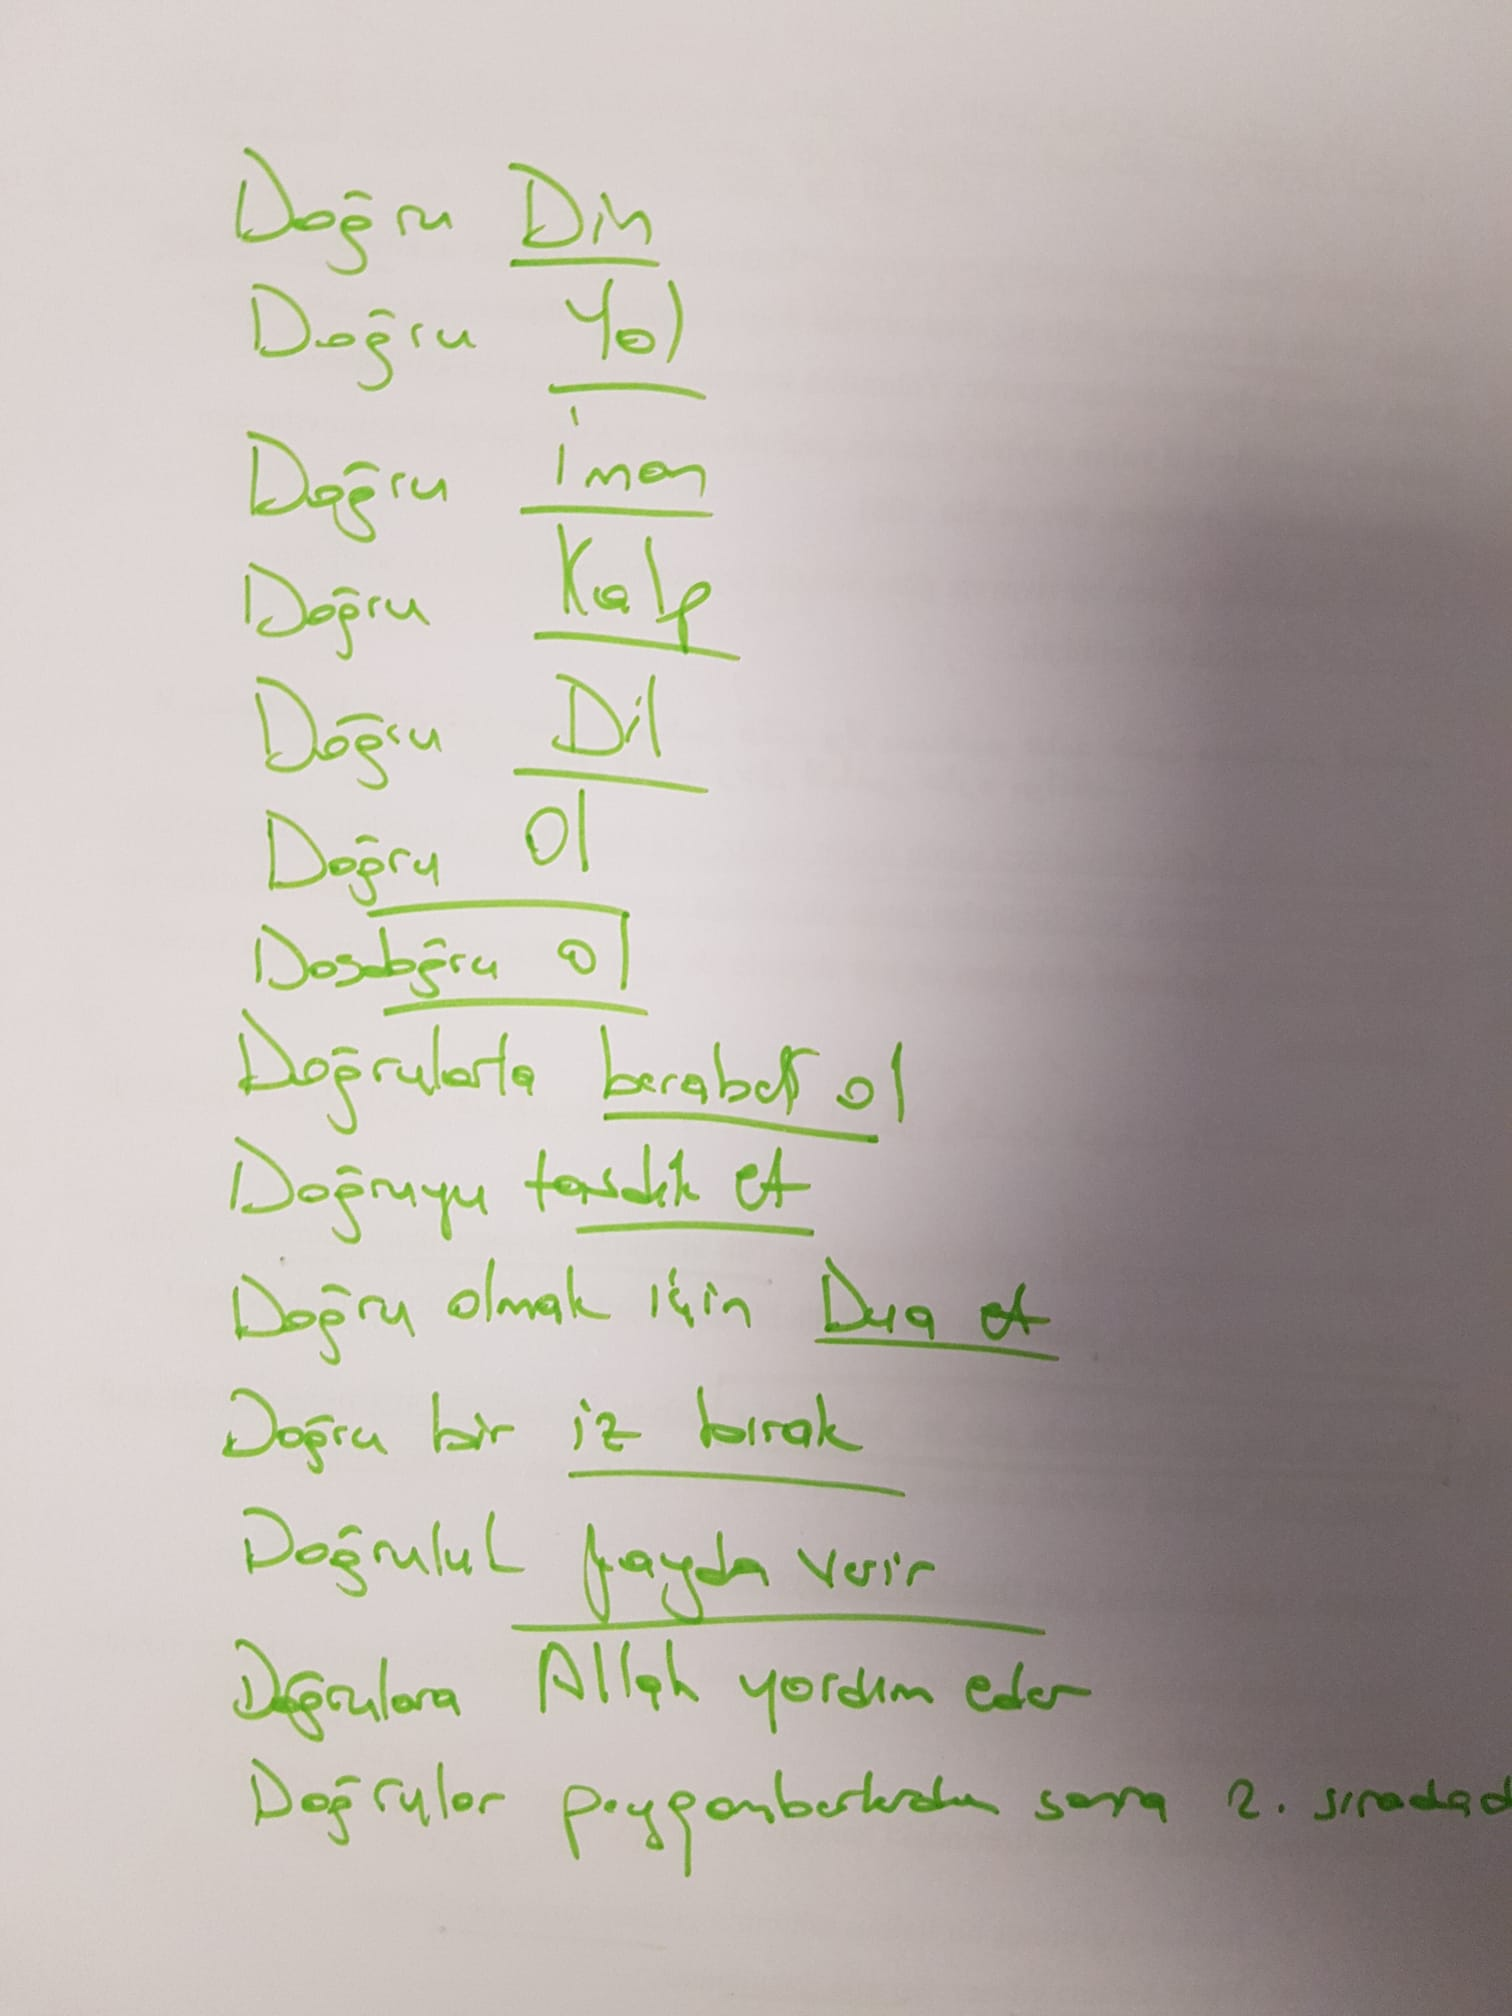 Doğru Din
Doğru Yol
Doğru iman
Doğru Kalp
Doğru Dil
Doğru ol
Dosdoğru ol
Doğrularla beraber ol
Doğruyu tasdik et
Doğru olmak için Dua et
Doğru bir iz bırak
Doğruluk fayda verir
Doğrulara Allah yardım eder
Doğrular peygamberlerden sonra 2. sıradad